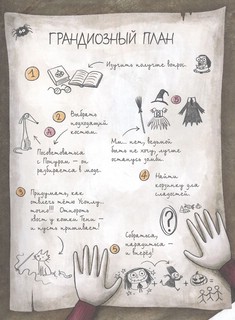 ГРАНДИОЗНЫЙ ПЛАН
1
Изучить получше вопрос.
2
Выбрать
подходящий
костюм.
А
Посоветоваться
с Покусом — он
разбирается в моде.
Б
Мм... нет, ведьмой
быть не хочу, лучше
стану зомби.
3
Придумать, как
отвлечь тётю Уснлу...
точно!!! Оторвать
хвост у кошки Тоши —
и пусть пришивает!
4
Найти
корзинку для
сладостей.
?
5
Собраться,
нарядиться —
и вперёд!